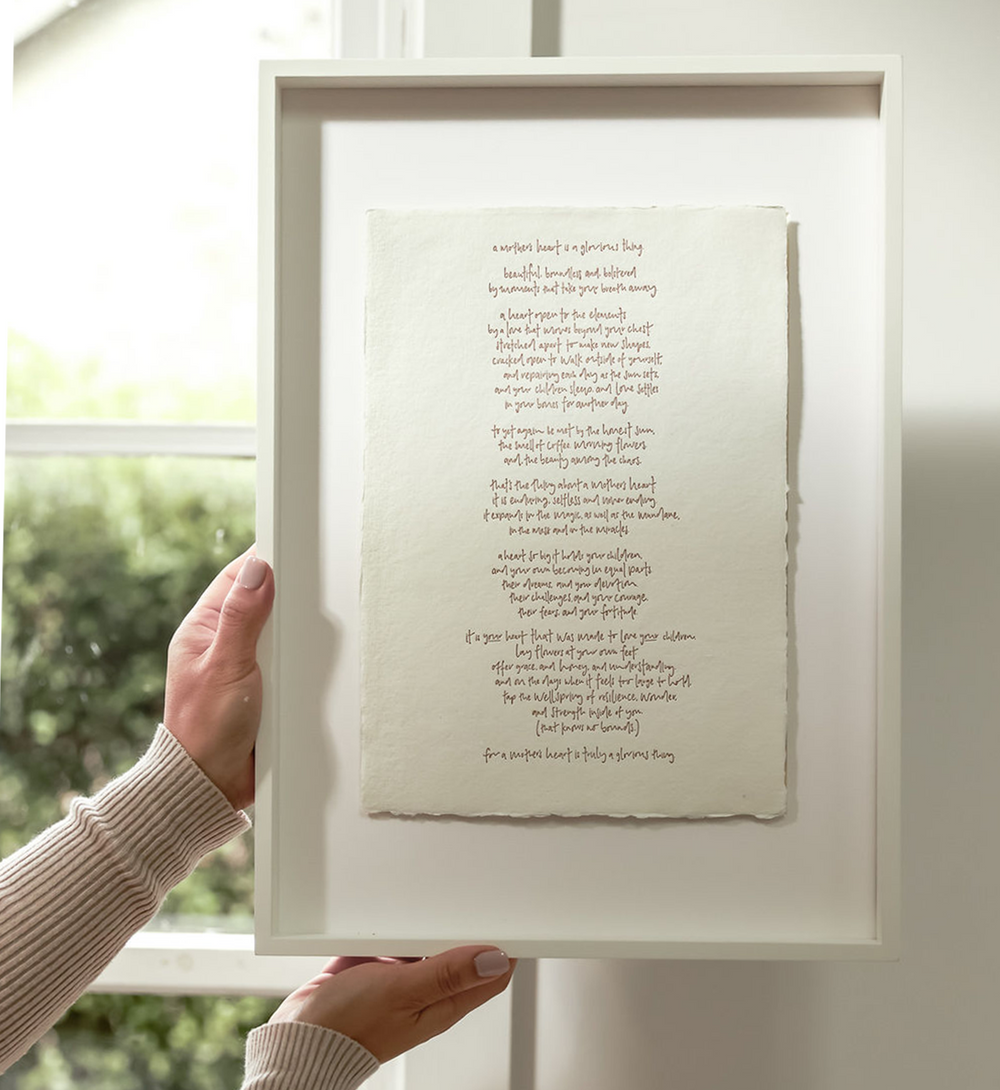 a mothers heart is a glorious thing
beautiful, boundless and bolstered
by moments that take your breath away
a heart open to the elements
by a love that moves beyond your chest
stretched apart to make new shapes,
cracked open to walk outside of yourself,
and repairing each day as the sun sets
and your children sleep, and love settles
in your bones for another day.
to yet again be met by the honest sun,
the smell of coffee, morning flowers
and, the beauty among the chaos.
that's the thing about a mothers heart
it is enduring, selfless and never ending
it expands in the magic, as well as the mundane,
in the mess and in the miracles.
a heart so big it holds your children,
and your own becoming in equal parts
their dreams, and your devotion,
their challenges, and your courage,
their fears, and your fortitude.
it is your heart that was made to love your children,
lay flowers at your own feet
offer grace, and honey, and understanding
and on the days when it feels too large to hold,
tap the wellspring of resilience, wonder,
and strength inside of you
(that knows no bounds.)
for a mothers heart is truly a glorious thing